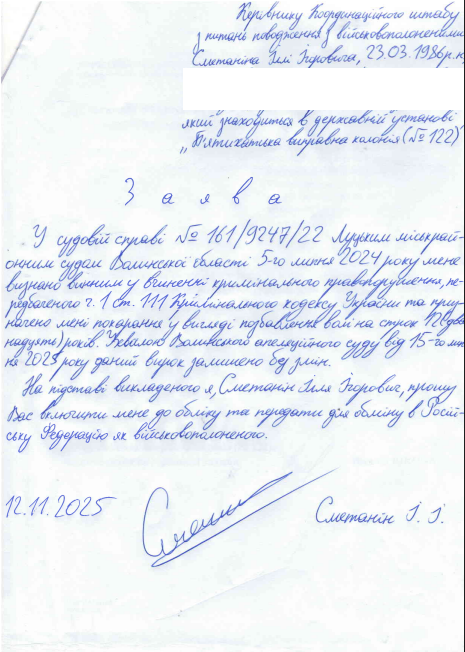 Керівнику Координаційного штабу
з питань поводження з військовополоненими
Сметаніна Іллі Ігоровича, 23.03.1986р.н,
який знаходиться в державній установі
„П'ятихатська виправна колонія (№122)
Заява
У судовій справі № 161/9247/22 Луцьким міськрай-
онним судом Волинської області 5-го липня 2024 року мене
визнано винним у вчиненні кримінального правопорушення, пе-
редбаченого ч. 1 ст. 111 Кримінального кодексу України та приз-
начено мені покарання у вигляді позбавлення волі на строк 12 (два
надцять) років. Ухвалою Волинського апеляційного суду від 15-го
ня 2025 року даний вирок залишено без змін.
На підставі викладеного я, Сметанін Ілля Ігорович, прошу
Вас включити мене до обліку та передати для обміну в Росій-
ську Федерацію як військовополоненого.
12.11.2025
Сметанін І. І.